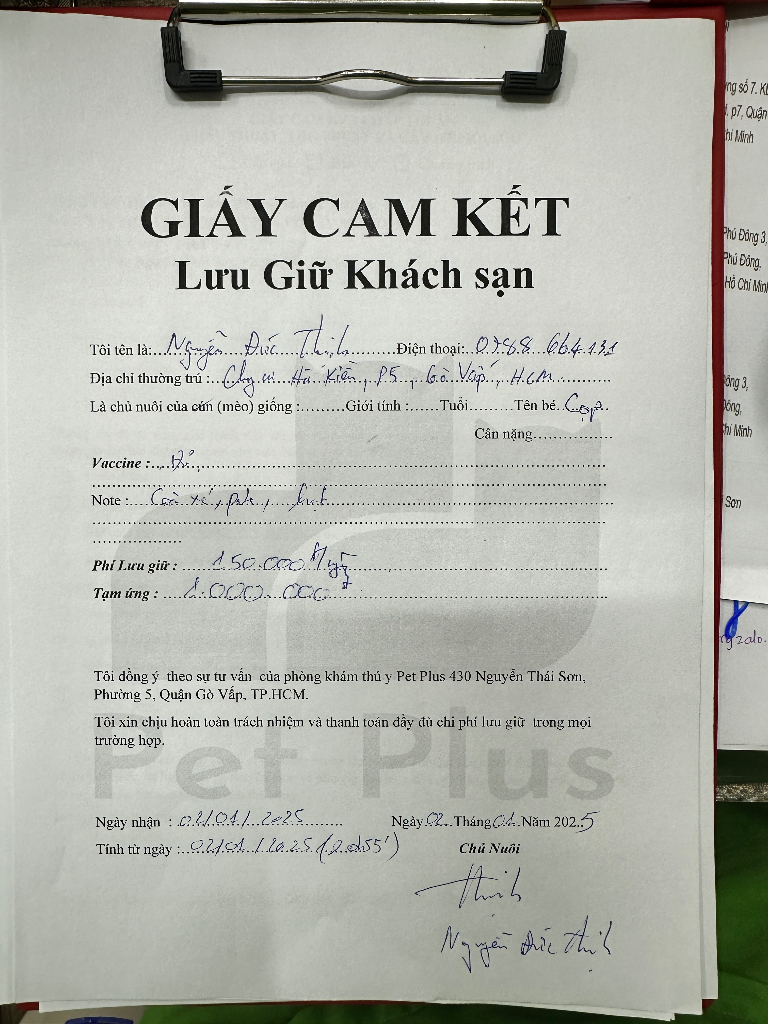 GIẤY CAM KẾT
Lưu Giữ Khách sạn
Tôi tên là:....Nguyễn Đức Thịnh............Điện thoại:..0988 664131
Địa chỉ thường trú :... Hà Kiên, P5, Gò Vấp, HCM............
Là chủ nuôi của cún (mèo) giống :.........Giới tính :......Tuổi.......... Tên bé. Cọp.
Cân nặng..................
Vaccine :....đủ,....................................................................
Note :.... pate, hạt....................................................................
Phí Lưu giữ : ......150.000đ/ngày..................................................
Tạm ứng : ....1.000.000đ..................................................
Tôi đồng ý theo sự tư vấn của phòng khám thú y Pet Plus 430 Nguyễn Thái Sơn,
Phường 5, Quận Gò Vấp, TP.HCM.
Tôi xin chịu hoàn toàn trách nhiệm và thanh toán đầy đủ chi phí lưu giữ trong mọi
trường hợp.
Pet Plus
Ngày nhận : .02/01/2025...........
Ngày 02 Tháng 01 Năm 2025
Tính từ ngày : ..02/01/2025 (20h55')
Chủ Nuôi
Thịnh
Nguyễn Đức Thịnh
số 7.
p7, Quận
Chí Minh
Phú Đông 3,
Phú Đông,
Hồ Chí Minh
Đông 3,
Đông,
Chí Minh
Sơn
zalo.